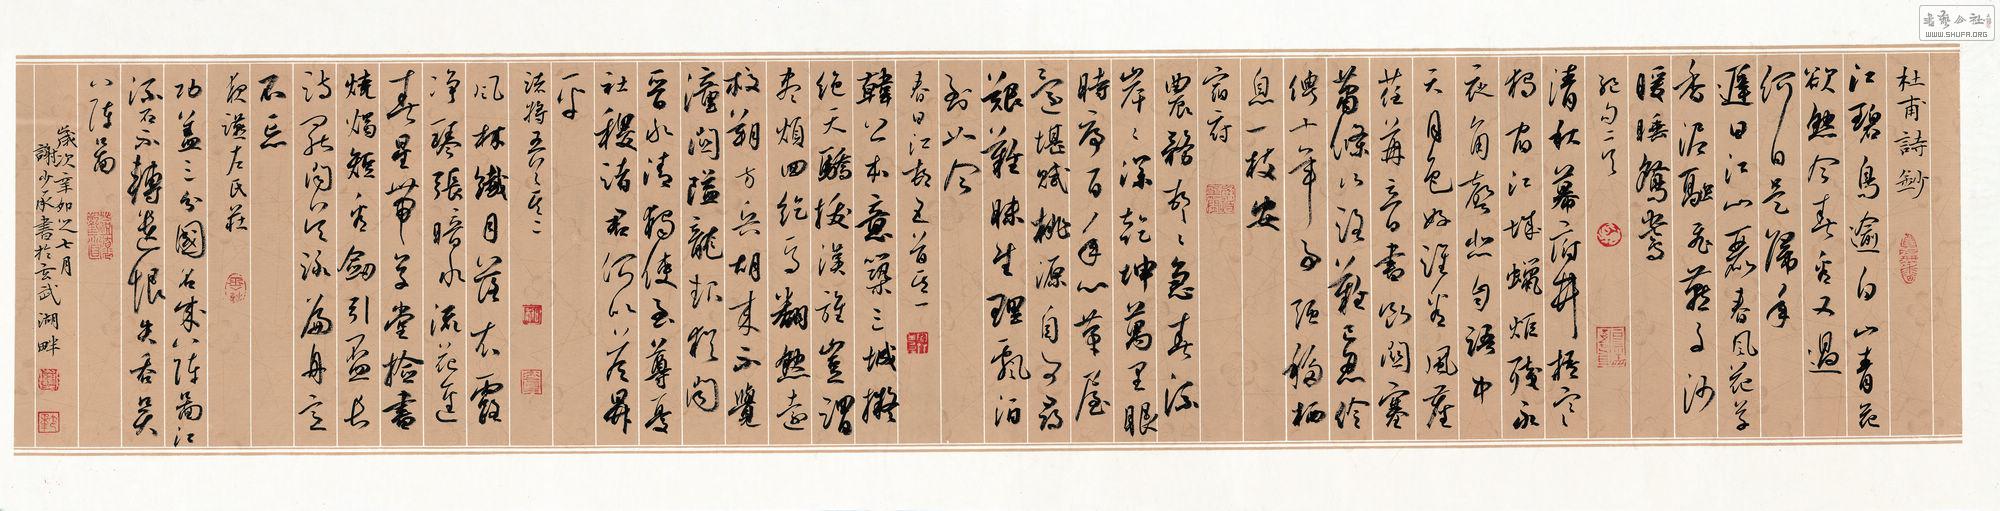 杜甫詩鈔
江碧鳥逾白山青花
欲然今春看又過
何日是歸年
遲日江山麗春風花草
香泥融飛燕子沙
暖睡鴛鴦
絕句二首
清秋幕府井梧寒
獨宿江城蠟炬殘永
夜角聲悲自語中
天月色好誰看風塵
荏苒音書斷關塞
蕭條行路難已忍伶
俜十年事強移栖
息一枝安
宿府
農務村村急春流
岸岸深乾坤萬里眼
時序百年心茅屋
還堪賦桃源自可尋
艱難昧生理飄泊
到如今
春日江村五首其一
韓公本意築三城擬
絕天驕拔漢旌豈謂
盡煩回紇馬翻然遠
救朔方兵胡來不覺
潼關隘龍起猶聞
晉水清獨使至尊憂
社稷諸君何以答昇
平
諸將五首其二
風林纖月落衣露
淨琴張暗水流花徑
春星帶草堂檢書
燒燭短看劍引盃長
詩罷聞吳詠扁舟意
不忘
夜讌左氏莊
功蓋三分國名成八陣圖江
流石不轉遺恨失吞吳
八陣圖
歲次辛卯之七月
謝少承書於玄武湖畔
书艺公社
WWW.SHUFA.ORG